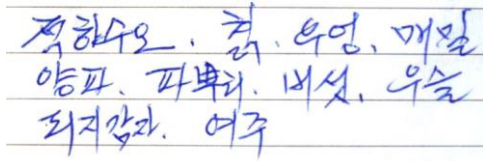 적하수오. 칡. 우엉. 매밀
양파. 파뿌리. 버섯. 우슬
돼지감자. 여주